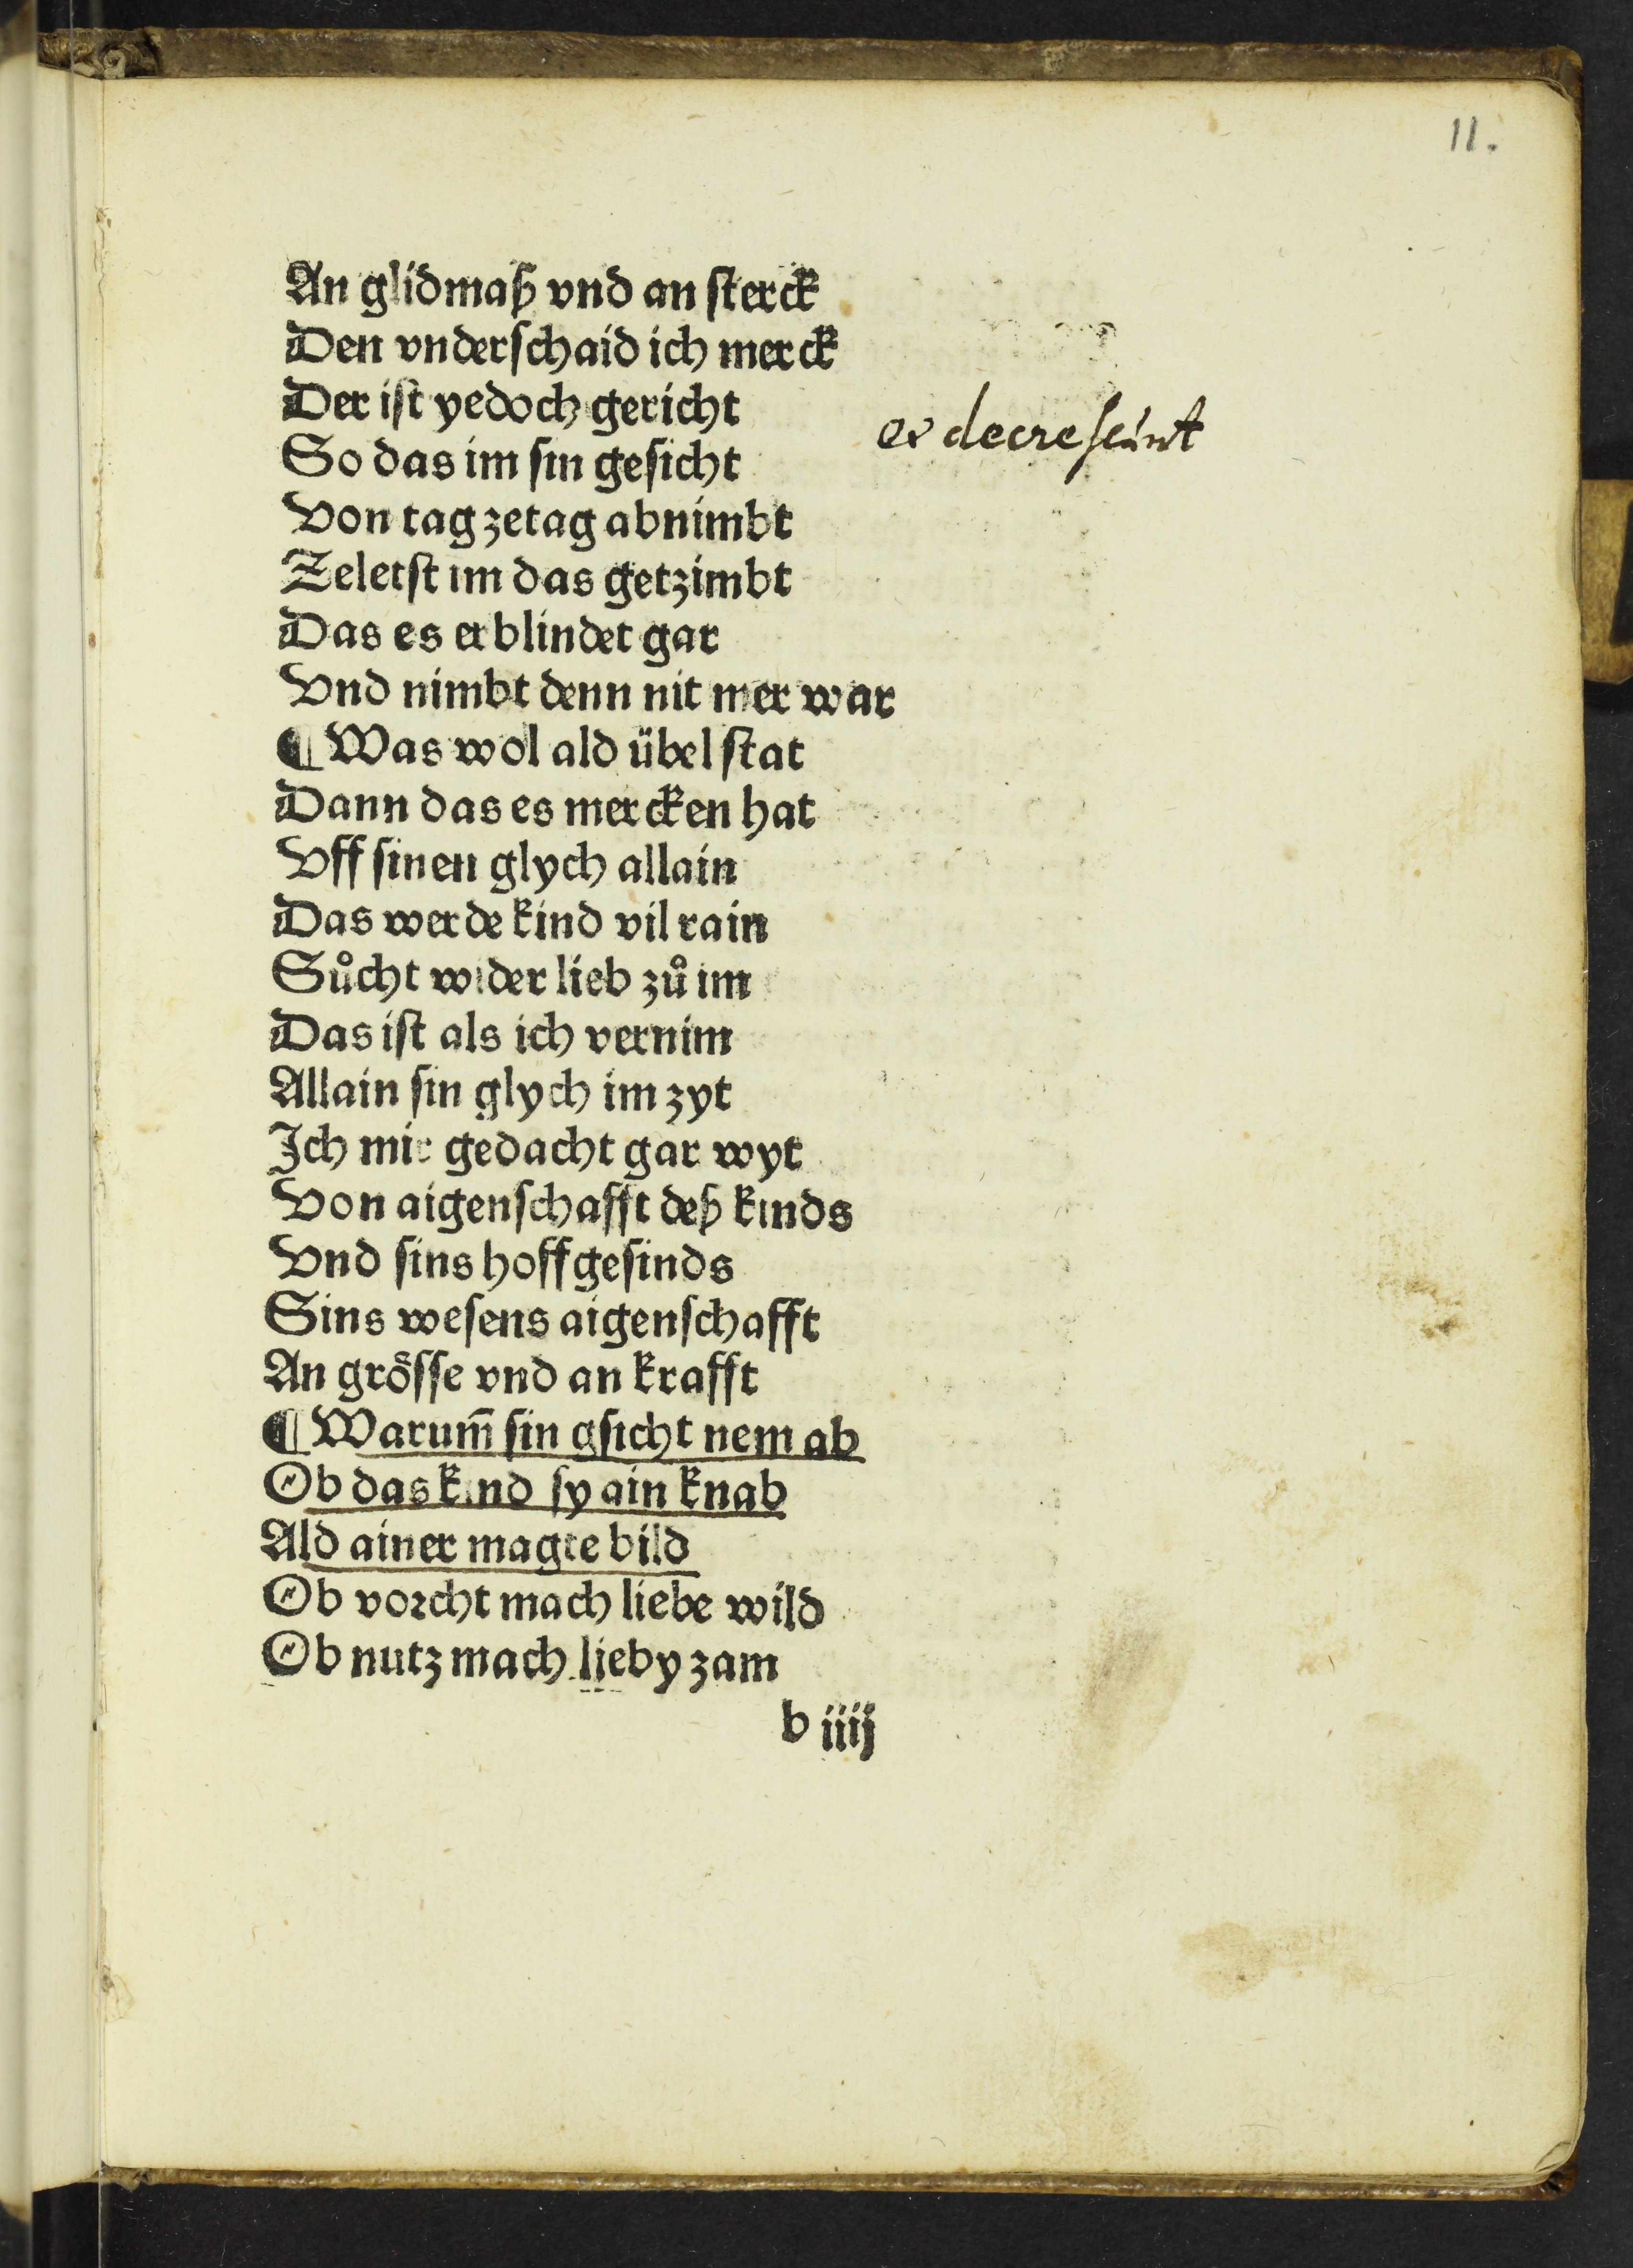 11.
An glidmaß vnd an sterck
Den vnderschaid ich merck
Der ist yedoch gericht
So das im sin gesicht
Von tag zetag abnimbt
Zeletst im das getzimbt
Das es erblindet gar
Vnd nimbt denn nit mer war
¶ Was wol ald übel stat
Dann das es mercken hat
Vff sinen glych allain
Das werde kind vil rain
Sůcht wider lieb zů im
Das ist als ich vernim
Allain sin glych im zyt
Ich mir gedacht gar wyt
Von aigenschafft deß kinds
Vnd sins hoffgesinds
Sins wesens aigenschafft
An grösse vnd an krafft
¶ Warum̄ sin gsicht nem ab
Ob das kind sy ain knab
Ald ainer magte bild
Ob vorcht mach liebe wild
Ob nutz mach lieby zam
b iiij
decrescunt